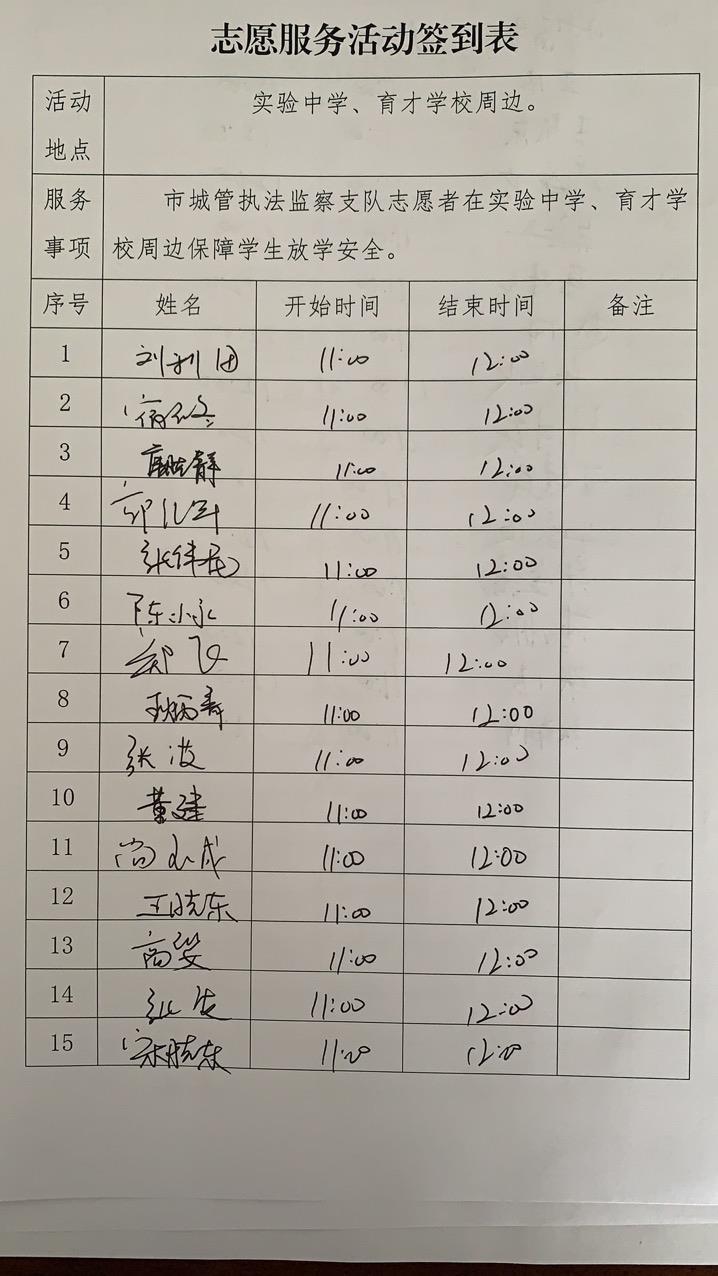 志愿服务活动签到表
活动地点 实验中学、育才学校周边。
服务事项 市城管执法监察支队志愿者在实验中学、育才学
校周边保障学生放学安全。
序号 姓名 开始时间 结束时间 备注
1 刘利团 11:00 12:00
2 11:00 12:00
3 11:00 12:00
4 11:00 12:00
5 张伟民 11:00 12:00
6 陈小永 11:00 12:00
7 郑飞 11:00 12:00
8 11:00 12:00
9 张波 11:00 12:00
10 董建 11:00 12:00
11 尚 成 11:00 12:00
12 王晓东 11:00 12:00
13 高 11:00 12:00
14 张 11:00 12:00
15 宋晓东 11:00 12:00